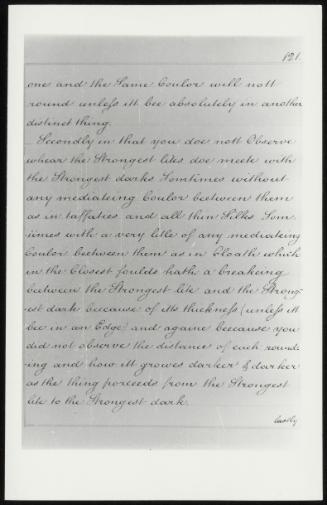 121.
one and the Same Coulor will nott
round unless itt bee absolutely in another
distinct thing.
Secondly in that you doe nott Observe
whear the Strongest lites doe meete with
the Strongest darks Somtimes without
any mediateing Coulor between them
as in taffaties and all thin Silks Som-
times with a very litle of any mediateing
Coulor between them as in Cloath which
in the Closest foulds hath a breakeing
between the Strongest lite and the Strong-
est dark because of itts thickness (unless itt
bee in an Edge) and againe beecause you
did not observe the distance of each round-
ing and how itt growes darker & darker
as the thing porceeds from the Strongest
lite to the Strongest dark.
Lastly